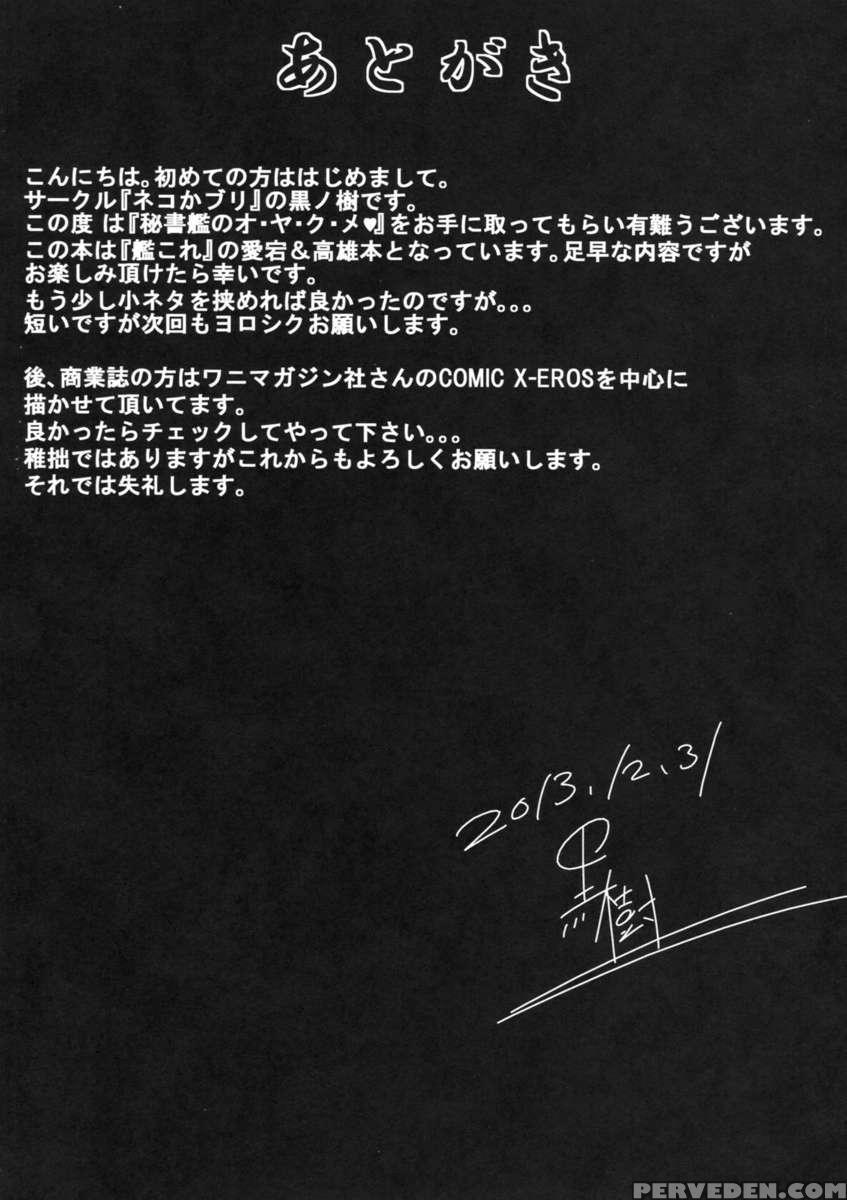 あとがき
こんにちは。初めての方ははじめまして。
サークル『ネコかブリ』の黒ノ樹です。
この度 は『秘書艦のオ・ヤ・ク・メ♥』をお手に取ってもらい有難うございます。
この本は『艦これ』の愛宕&高雄本となっています。足早な内容ですが
お楽しみ頂けたら幸いです。
もう少し小ネタを挟めれば良かったのですが。。。
短いですが次回もヨロシクお願いします。
後、商業誌の方はワニマガジン社さんのCOMIC X-EROSを中心に
描かせて頂いてます。
良かったらチェックしてやって下さい。。。
稚拙ではありますがこれからもよろしくお願いします。
それでは失礼します。
2013.12.31
黒樹
PERVEDEN.COM